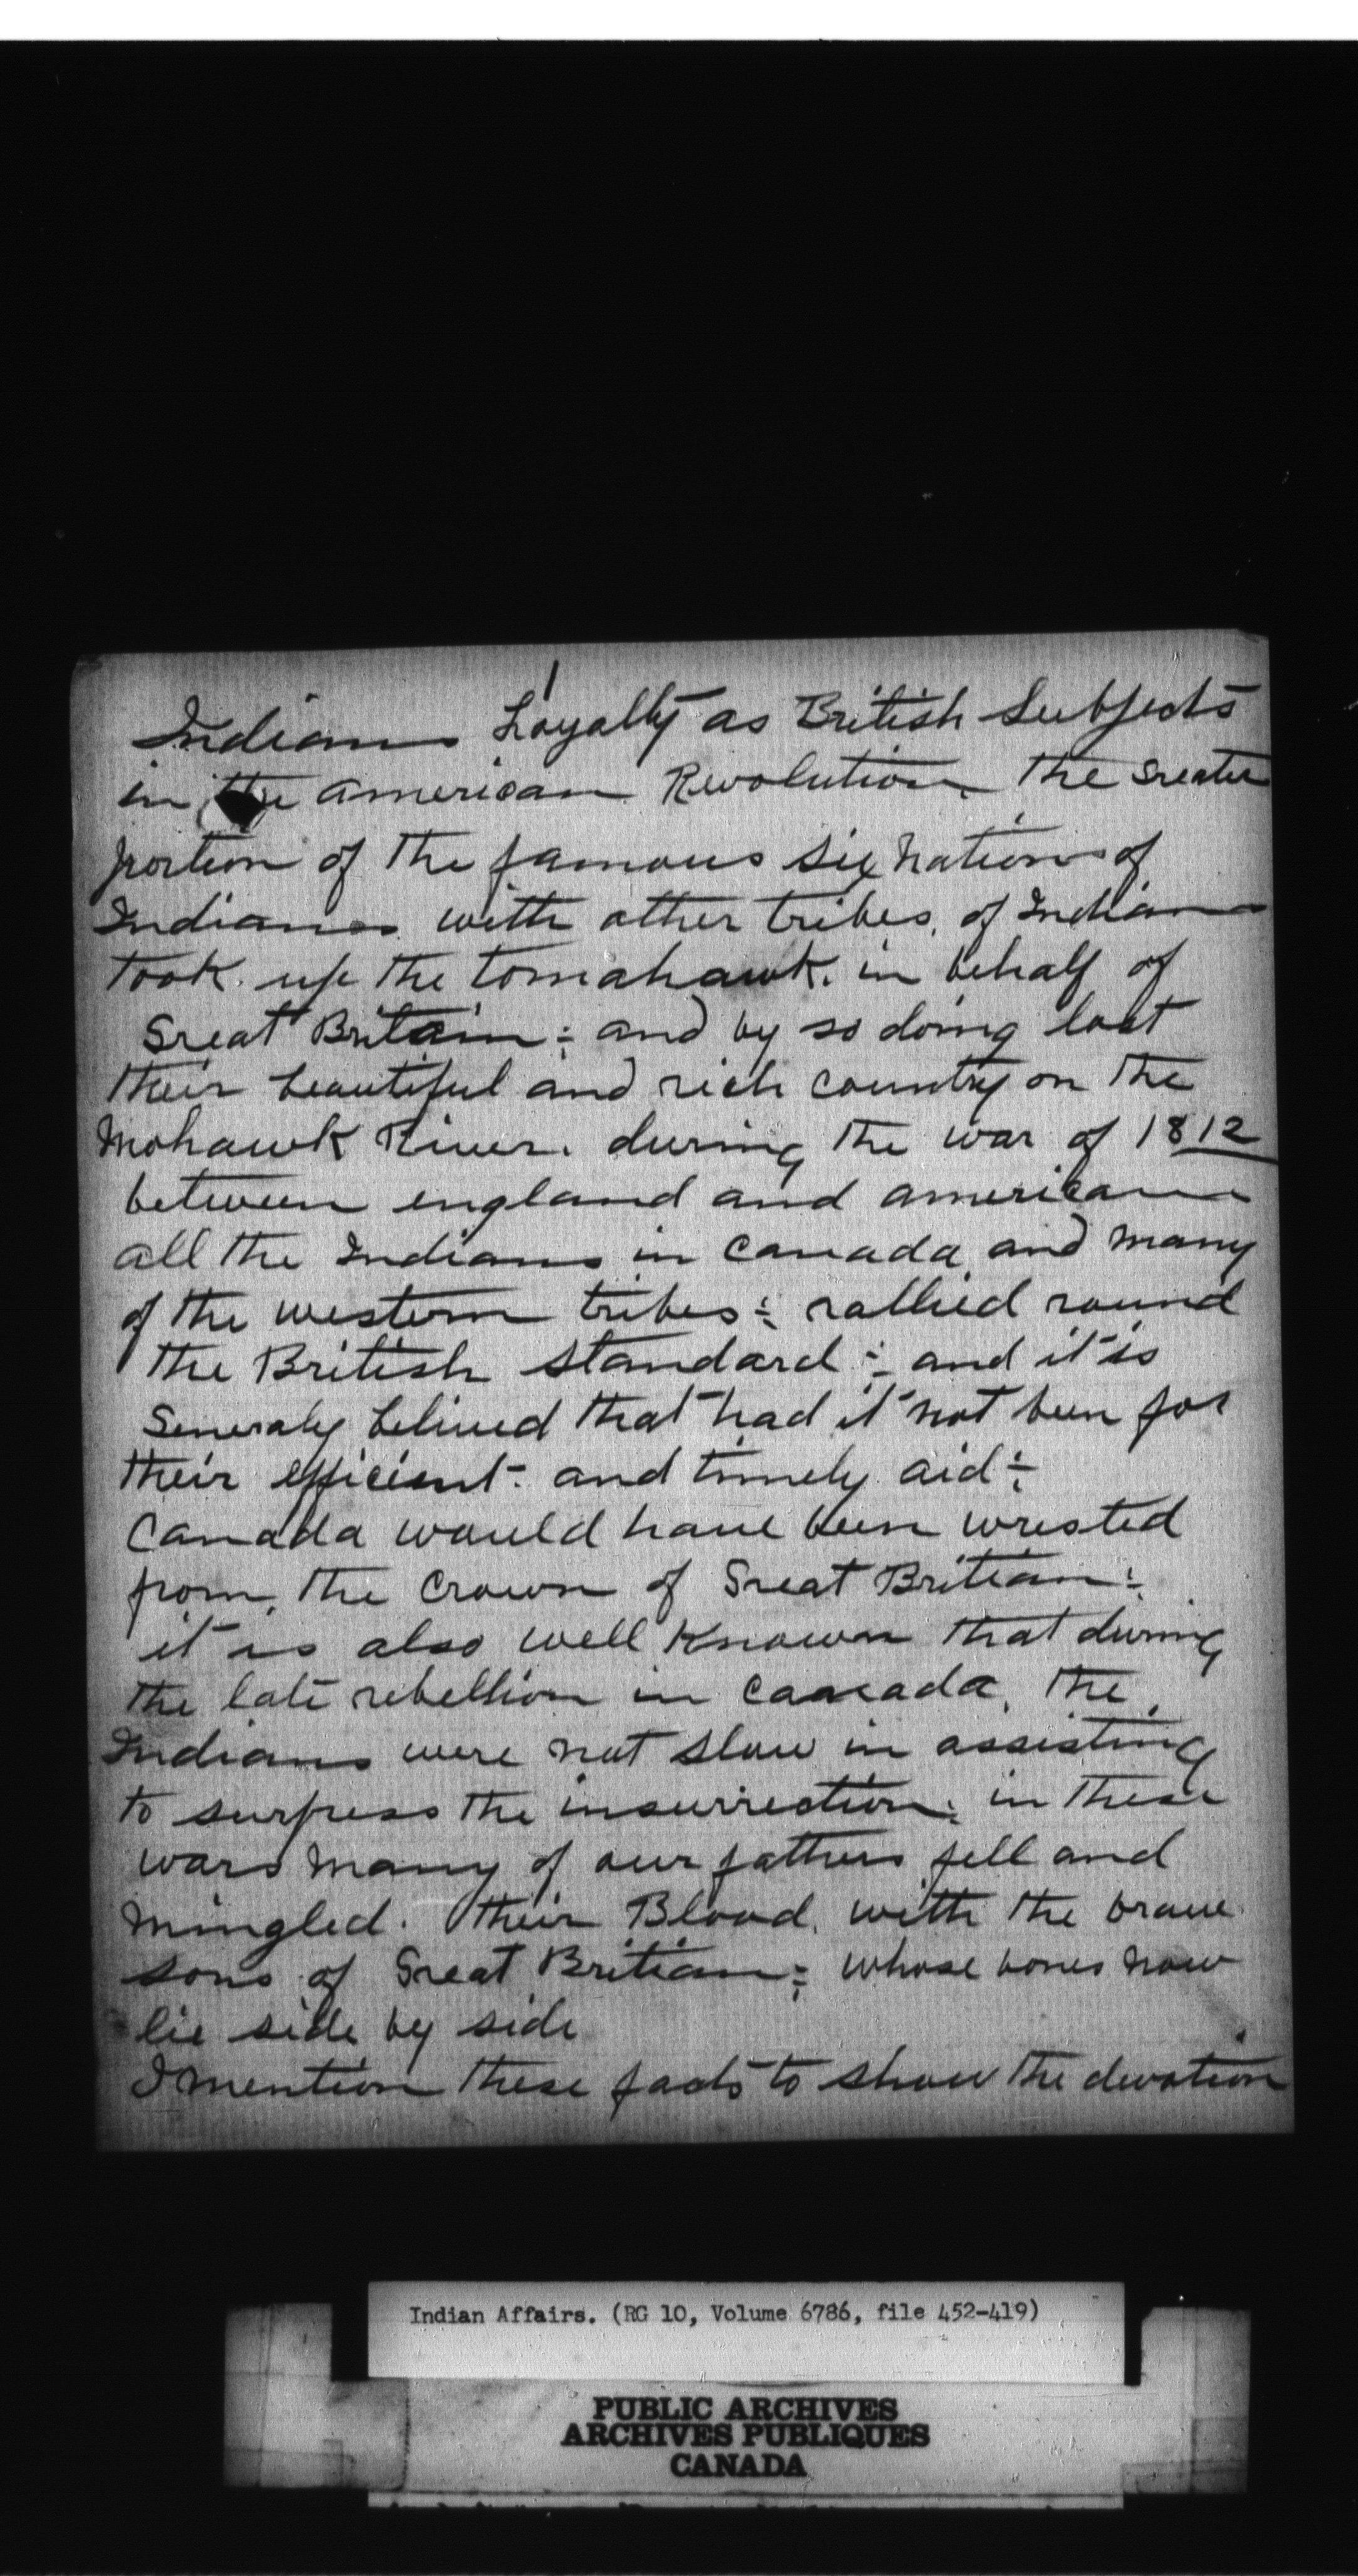 1
Indians Loyalty as British Subjects
in the american Revolution, the Greater
portion of the famous six Nations of
Indians with other tribes, of Indians
took up the tomahawk. in behalf of
Great Britain; and by so doing lost
their beautiful and rich country on the
Mohawk River. during the war of 1812
between england and americans
all the Indians in Canada, and many
of the western tribes; rallied round
the British Standard; and it is
Generaly belived that had it not been for
their efficient - and timely aid;
Canada would have been wrested
from, the Crown of Great Britian;
it is also well Known that during
the late rebellion in Canada, the,
Indians were not slow in assisting
to surpress the insurrection; in these
wars many of our fathers fell and
mingled. their Blood. with the brave
sons of Great Britian; whose bones now
lie side by side
I mention these facts to show the devotion
Indian Affairs. (RG 10, Volume 6786, file 452-419)
PUBLIC ARCHIVES
ARCHIVES PUBLIQUES
CANADA